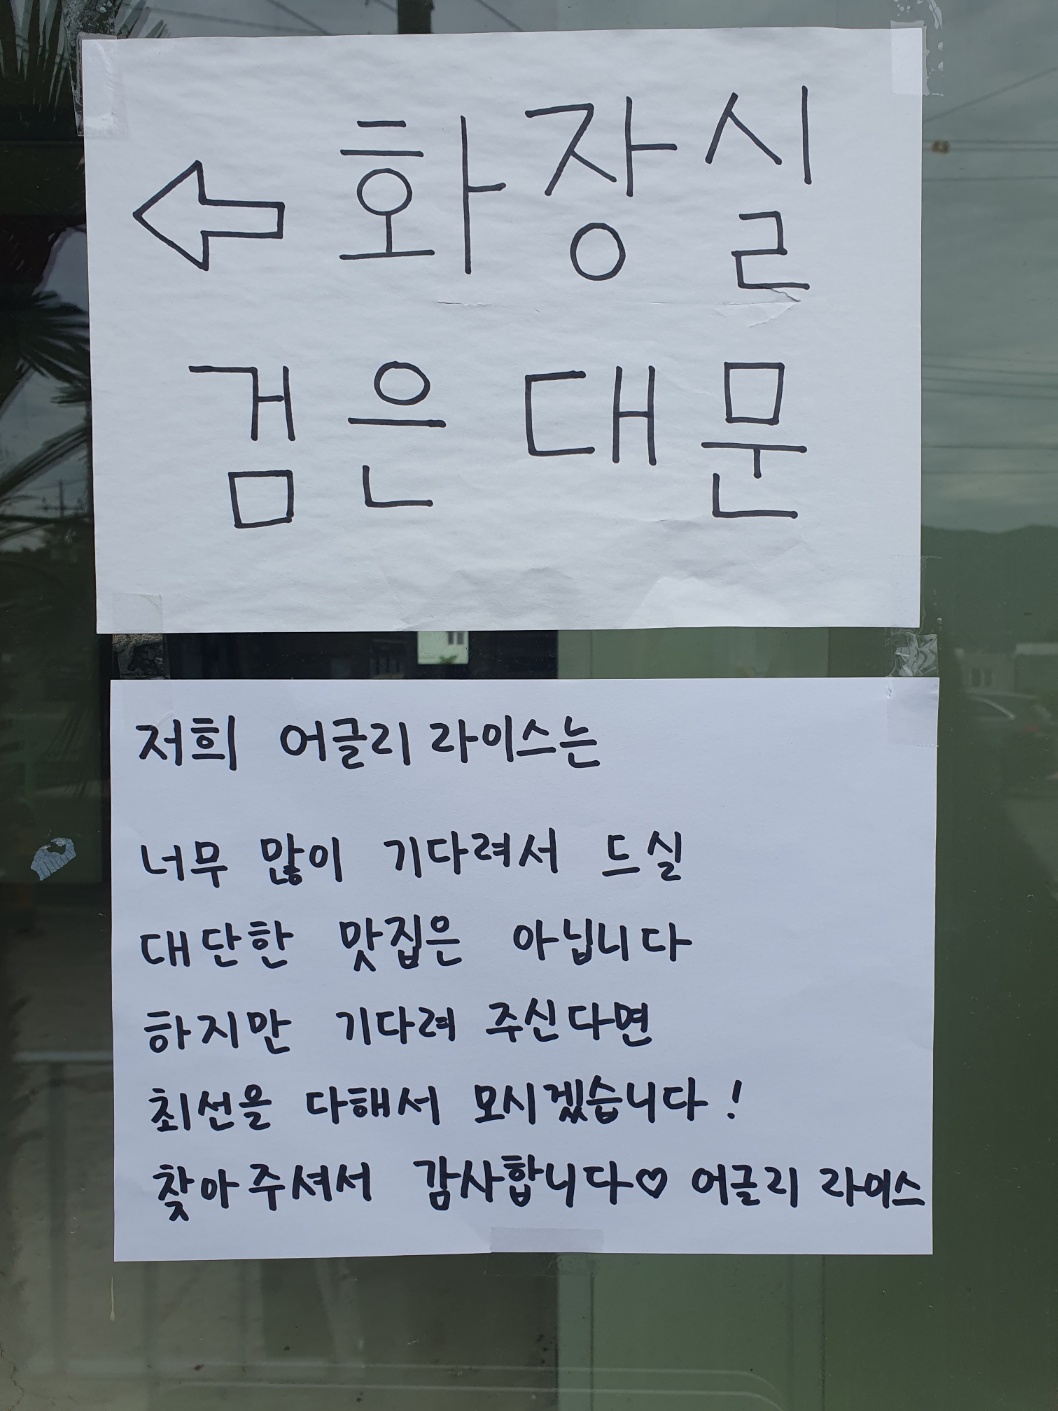 화장실
검은 대문
저희 어글리 라이스는
너무 많이 기다려서 드실
대단한 맛집은 아닙니다
하지만 기다려 주신다면
최선을 다해서 모시겠습니다!
찾아주셔서 감사합니다♡ 어글리 라이스